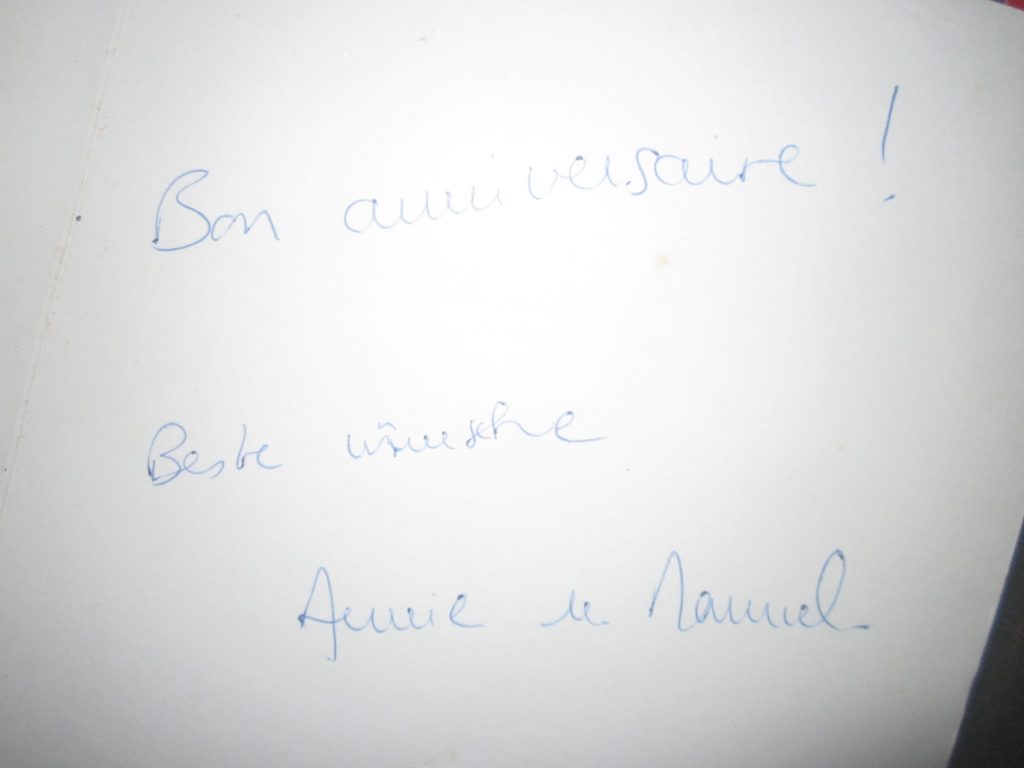 Bon anniversaire !
Beste wünsche
Annie u. Manuel